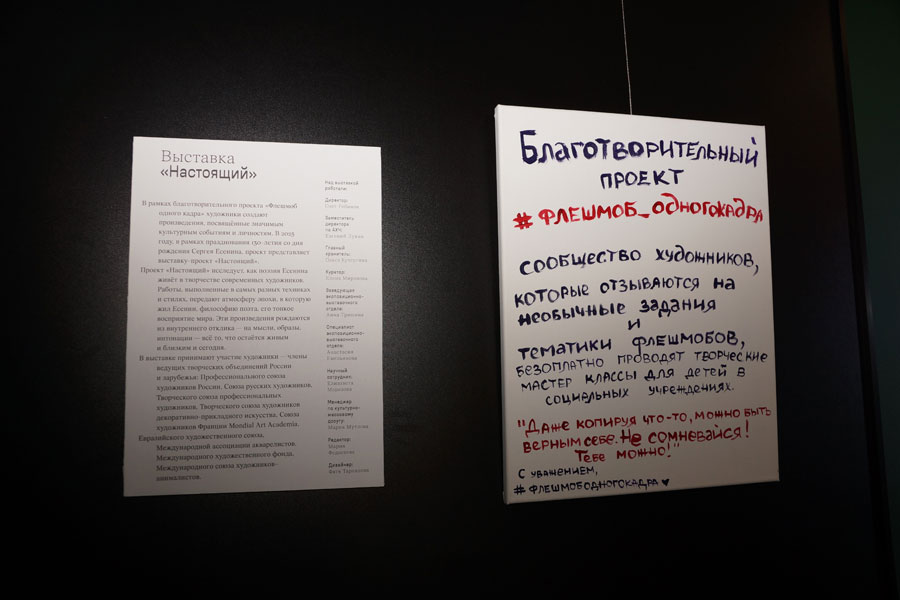 Выставка
«Настоящий»
В рамках благотворительного проекта «Флешмоб
одного кадра» художники создают
произведения, посвящённые значимым
культурным событиям и личностям. В 2025
году, в рамках празднования 130-летия со дня
рождения Сергея Есенина, проект представляет
выставку-проект «Настоящий».
Проект «Настоящий» исследует, как поэзия Есенина
живёт в творчестве современных художников.
Работы, выполненные в самых разных техниках
и стилях, передают атмосферу эпохи, в которую
жил Есенин, философию поэта, его тонкое
восприятие мира. Эти произведения рождаются
из внутреннего отклика — на мысли, образы,
интонации — всё то, что остаётся живым
и близким и сегодня.
В выставке принимают участие художники — члены
ведущих творческих объединений России
и зарубежья: Профессионального союза
художников России, Союза русских художников,
Творческого союза профессиональных
художников, Творческого союза художников
декоративно-прикладного искусства, Союза
художников Франции Mondial Art Academia,
Евразийского художественного союза,
Международной ассоциации акварелистов,
Международного художественного фонда,
Международного союза художников-
анималистов.
Над выставкой
работали:
Директор:
Заместитель
директора
Главный
хранитель:
Куратор:
Заведующая
экспозиционно-
выставочного
отдела:
Специалист
экспозиционно-
выставочного
отдела:
Анастасия
Научный
сотрудник:
Елизавета
Менеджер
по культурно-
массовому
досугу:
Мария
Редактор:
Мария
Дизайнер:
БЛАГОТВОРИТЕЛЬНЫЙ
ПРОЕКТ
# ФЛЕШМОБ_ОДНОГОКАДРА
СООБЩЕСТВО ХУДОЖНИКОВ,
КОТОРЫЕ ОТЗЫВАЮТСЯ НА
НЕОБЫЧНЫЕ ЗАДАНИЯ
И
ТЕМАТИКИ ФЛЕШМОБОВ,
БЕЗОПЛАТНО ПРОВОДЯТ ТВОРЧЕСКИЕ
МАСТЕР КЛАССЫ ДЛЯ ДЕТЕЙ В
СОЦИАЛЬНЫХ УЧРЕЖДЕНИЯХ.
"ДАЖЕ КОПИРУЯ ЧТО-ТО, МОЖНО БЫТЬ
ВЕРНЫМ СЕБЕ. НЕ СОМНЕВАЙСЯ!
ТЕБЕ МОЖНО!"
С УВАЖЕНИЕМ,
# ФЛЕШМОБОДНОГОКАДРА ♥